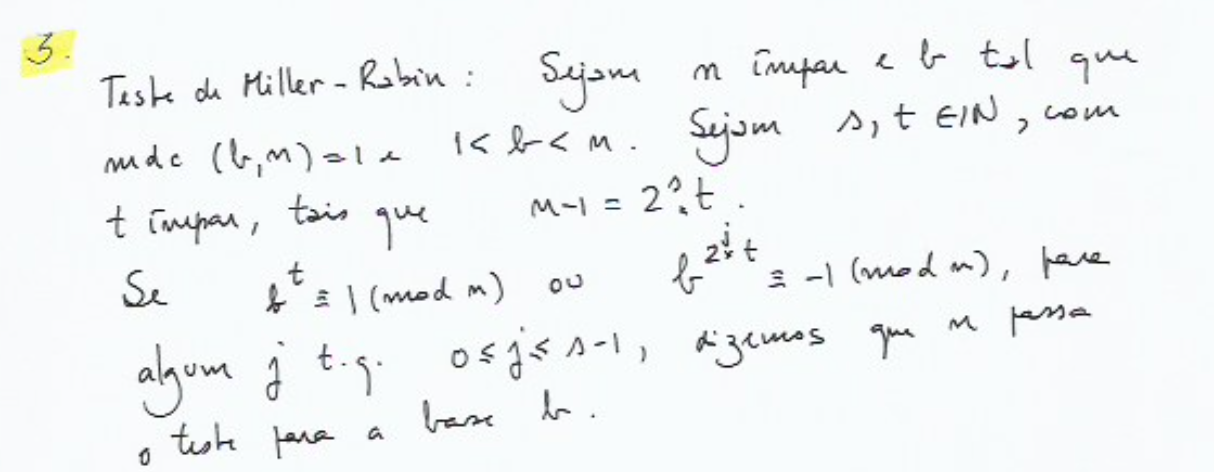 3.
Teste de Miller-Rabin: Sejam n ímpar e b tal que
mdc (b,n)=1 e 1<b<n. Sejam s,t ∈ IN, com
t ímpar, tais que n-1 = 2^s.t.
Se b^t ≡ 1 (mod n) ou b^{2^j t} ≡ -1 (mod n), para
algum j t.q. 0≤j≤s-1, dizemos que n passa
o teste para a base b.